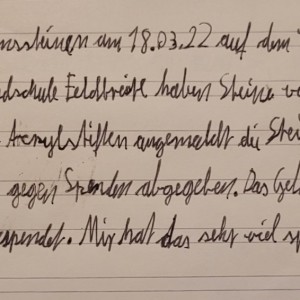 nssteinen am 18.03.22 auf dem
dschule Feldbreite haben Steine
Acrylstiften angemaldt die Stei
gegen Spenden abgegeben. Das Gel
espendet. Mir hat das sehr viel